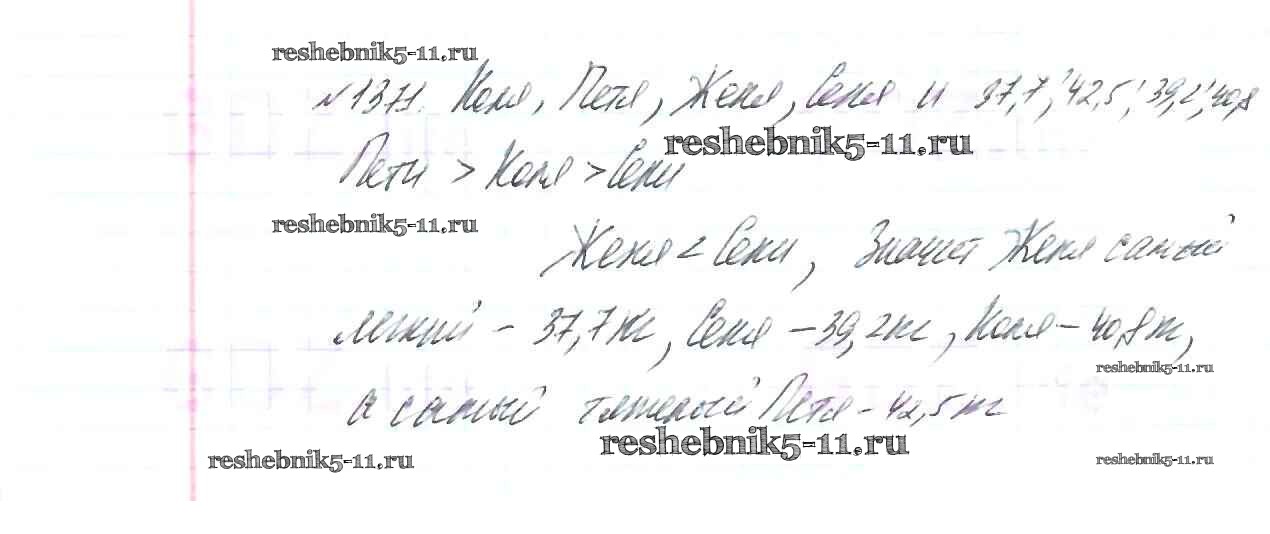 reshebnik5-11.ru
№1371. Коля, Петя, Женя, Сеня и 37,7; 42,5; 39,2; 40,8
reshebnik5-11.ru
Пети > Коля > Сени
reshebnik5-11.ru
Женя < Сени, Значит Женя самый
легкий - 37,7 кг, Сеня - 39,2 кг, Коля - 40,8 кг,
reshebnik5-11.ru
а самый тяжелый Петя - 42,5 кг
reshebnik5-11.ru
reshebnik5-11.ru
reshebnik5-11.ru